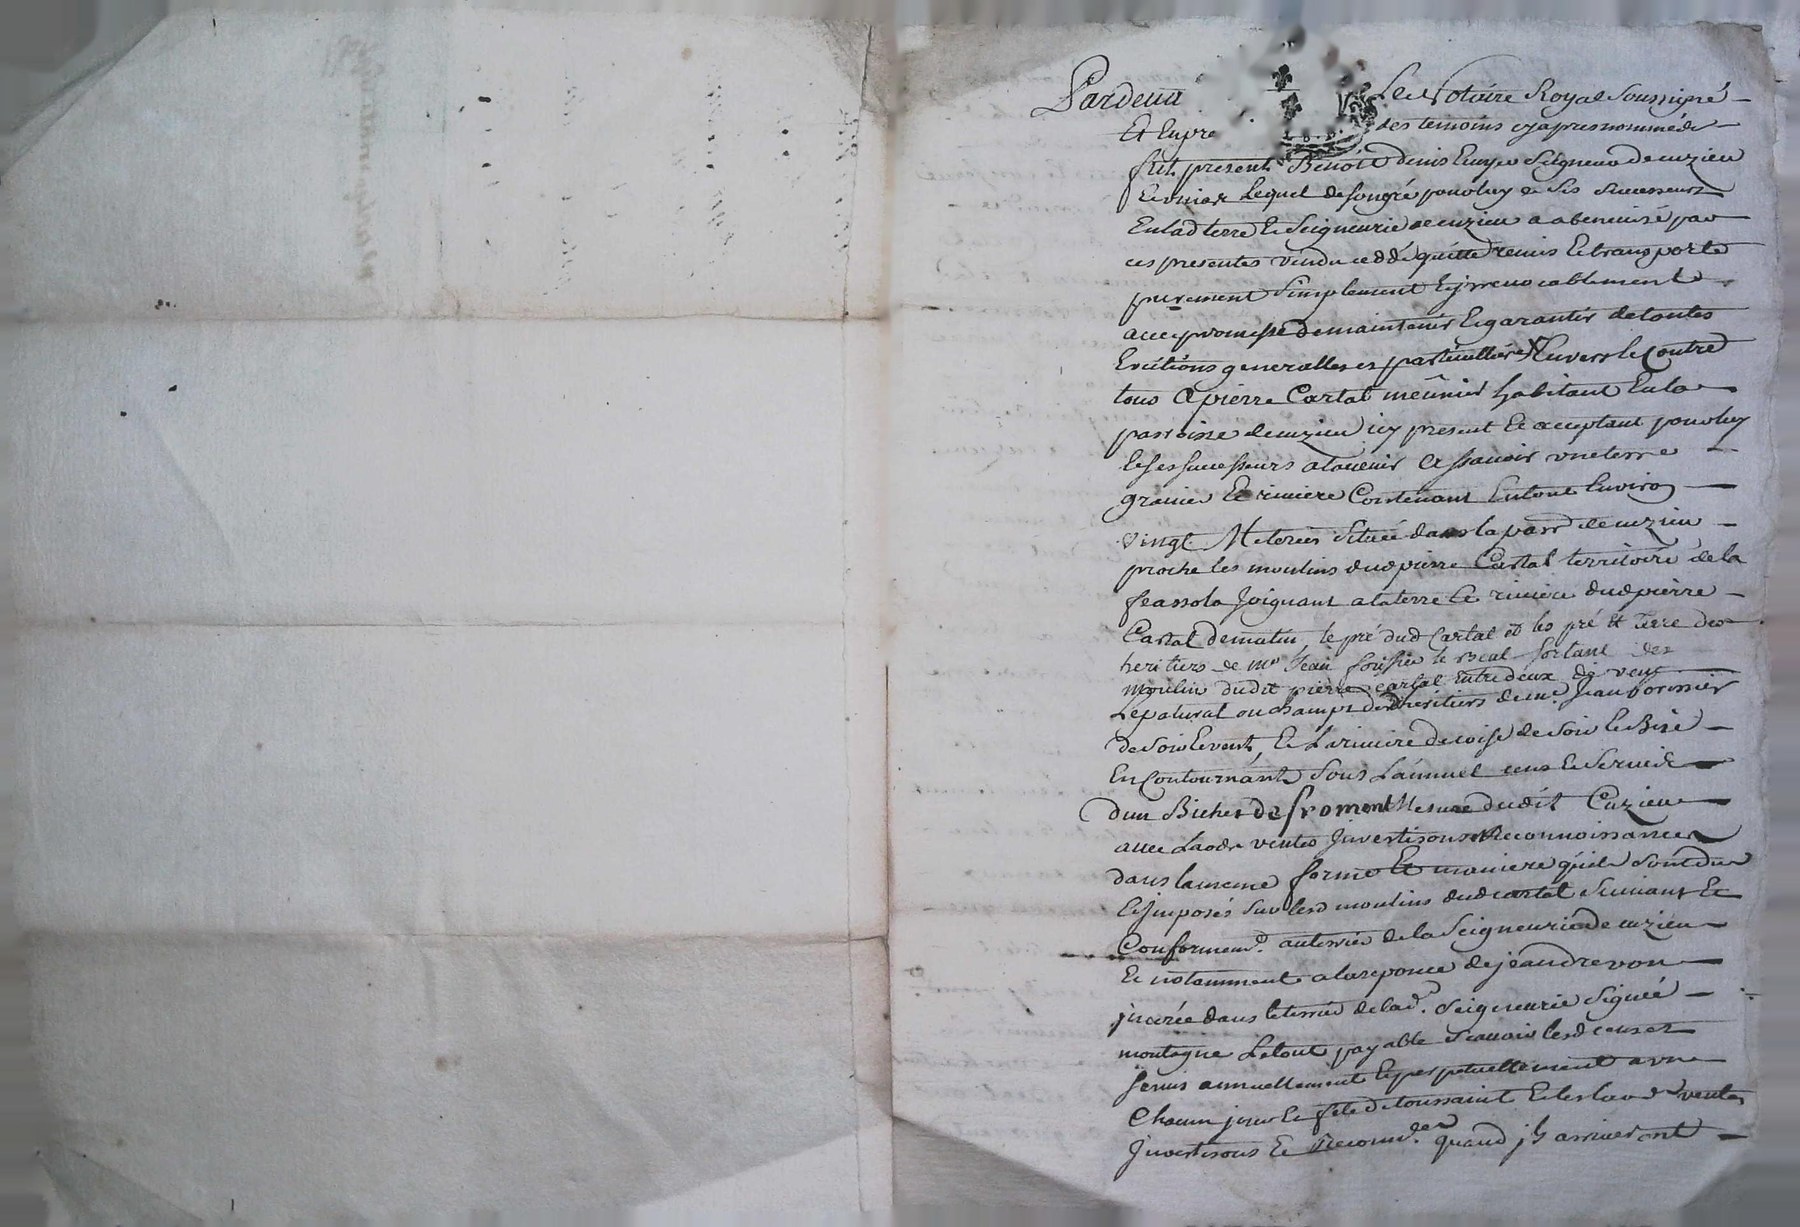 Pardevant Le Notaire Royal Soussigné
Et En pre des temoins cy apres nommés
fut present Benoit denis Ecuyer Seigneur de cuzieu
Lequel de son gré pour luy & ses successeurs
En lad terre Et Seigneurie de cuzieu a abenevisé par
ces presentes vendu ceddé quitté remis Et transporté
purement Simplement Et jrrevocablement
avec promesse de maintenir Et garantir de toutes
Evictions generalles et particullieres Envers Et Contre
tous A pierre Cartal meûnier habitant En la
parroisse de cuzieu icy present Et acceptant pour luy
Et ses successeurs a lavenir A Scavoir une terre
gravier Et riviere Contenant En tout Environ
vingt Meterées Située dans la parr de cuzieu
proche les moulins dud pierre Cartal territoire de la
feassola Joignant a la terre Et riviere dud pierre
Cartal de matin, le pré dud Cartal et les pré Et terre des
heritiers de Mr Jean le Beal sortant des
moulin dudit pierre cartal Entredeux de vent
Le patural ou champt des heritiers de me. Jean
de Soir Et vent, Et La riviere de coise de Soir Et Bize
En Contournant Sous Lannuel cens Et Servis
dun Bichet de froment Mesure dudit Cuzieu
avec Laods ventes Jnvestisons Et Reconnoissances
dans la meme forme Et maniere quils Sont dus
Et Jmposés Sur lesd moulins dud cartal Suivant Et
Conformemt. au terrier de la Seigneurie de cuzieu
Et notamment a la reponce de jean drevon
jncerée dans le terrier de lad. Seigneurie Signée
montagne Le tout payable Scavoir lesd cens et
servis annuellement Et perpetuellement a une
Chacun jour Et fête de toussaint Et les laods ventes
Jnvestisons Et Reconn.ces quand jls arriveront